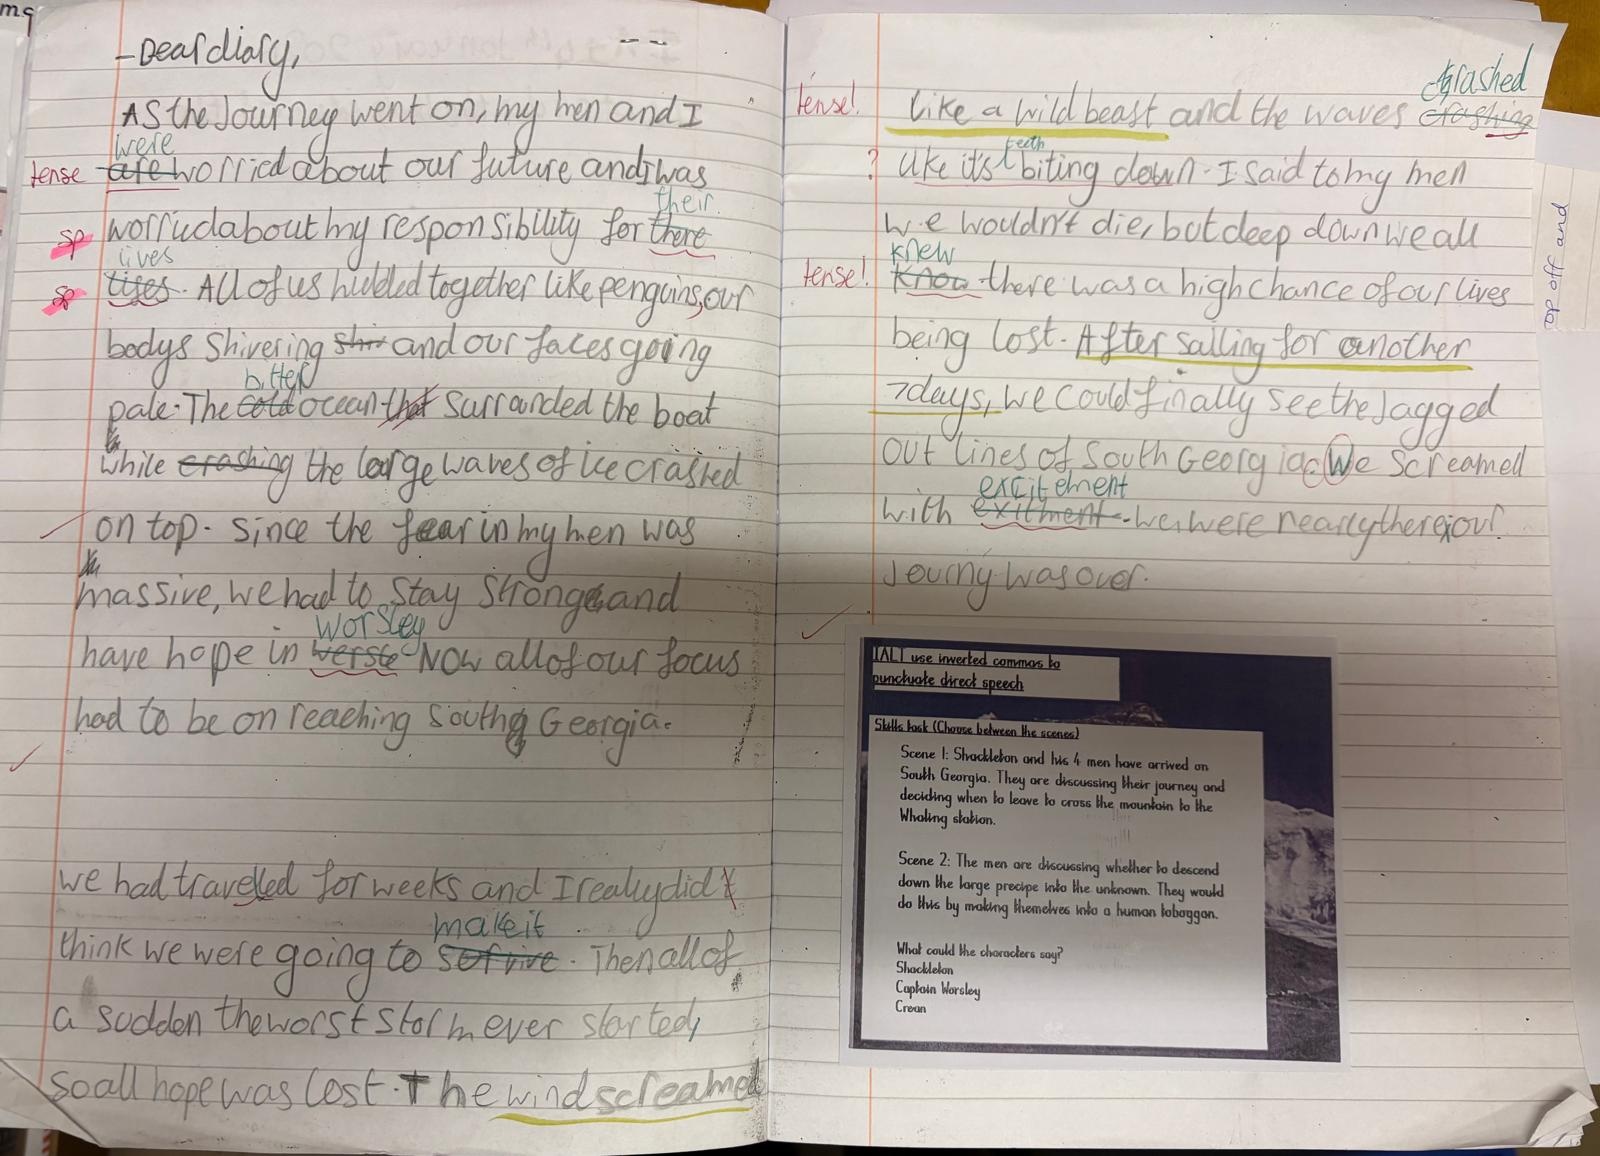 Dear diary,
As the Journey went on, my men and I
were
tense are worried about our future and I was
their
sp worried about my responsibility for there
lives
sp lifes. All of us huddled together like penguins, our
bodys shivering shiv and our faces going
bitter
pale. The cold ocean that surrounded the boat
while crashing the large waves of ice crashed
on top. Since the fear in my men was
massive, we had to stay strong and
Worsley
have hope in Now all of our focus
had to be on reaching South Georgia.
we had traveled for weeks and I really did
make it
think we were going to . Then all of
a sudden the worst storm ever started,
so all hope was lost. The wind screamed
crashed
tense! like a wild beast and the waves crashing
teeth
? like it's biting down. I said to my men
we wouldn't die, but deep down we all
knew
tense! know there was a high chance of our lives
being lost. After sailing for another
7 days, we could finally see the Jagged
out lines of South Georgia. We screamed
excitement
with exitment. we were nearly there, our
Journy was over.
IALT use inverted commas to
punctuate direct speech
Skills task (Choose between the scenes)
Scene 1: Shackleton and his 4 men have arrived on
South Georgia. They are discussing their journey and
deciding when to leave to cross the mountain to the
Whaling station.
Scene 2: The men are discussing whether to descend
down the large precipe into the unknown. They would
do this by making themselves into a human toboggan.
What could the characters say?
Shackleton
Captain Worsley
Crean
op off and